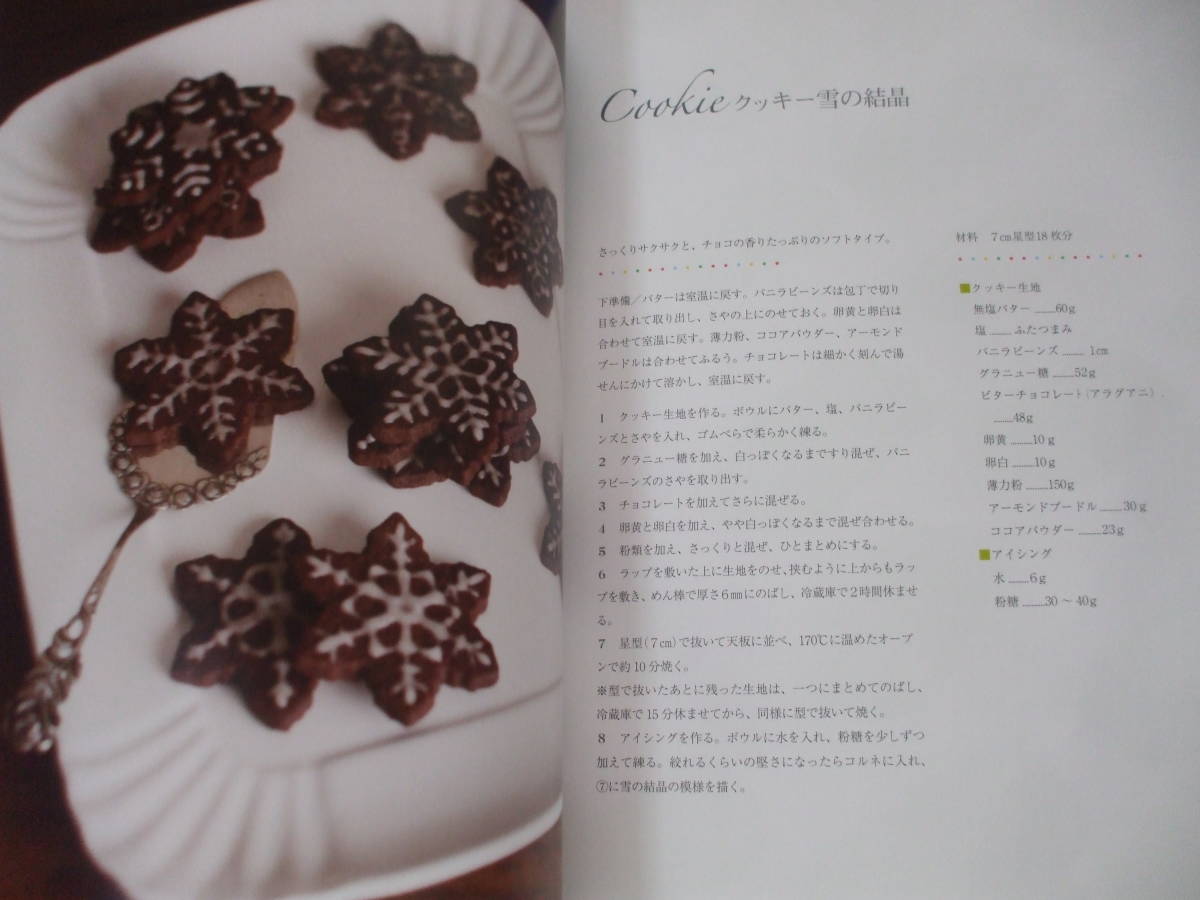 Cookie クッキー雪の結晶
さっくりサクサクと、チョコの香りたっぷりのソフトタイプ。
下準備／バターは室温に戻す。バニラビーンズは包丁で切り
目を入れて取り出し、さやの上にのせておく。卵黄と卵白は
合わせて室温に戻す。薄力粉、ココアパウダー、アーモンド
プードルは合わせてふるう。チョコレートは細かく刻んで湯
せんにかけて溶かし、室温に戻す。
1 クッキー生地を作る。ボウルにバター、塩、バニラビー
ンズとさやを入れ、ゴムべらで柔らかく練る。
2 グラニュー糖を加え、白っぽくなるまですり混ぜ、バニ
ラビーンズのさやを取り出す。
3 チョコレートを加えてさらに混ぜる。
4 卵黄と卵白を加え、やや白っぽくなるまで混ぜ合わせる。
5 粉類を加え、さっくりと混ぜ、ひとまとめにする。
6 ラップを敷いた上に生地をのせ、挟むように上からもラッ
プを敷き、めん棒で厚さ6㎜にのばし、冷蔵庫で2時間休ませ
る。
7 星型（7㎝）で抜いて天板に並べ、170℃に温めたオーブ
ンで約10分焼く。
※型で抜いたあとに残った生地は、一つにまとめてのばし、
冷蔵庫で15分休ませてから、同様に型で抜いて焼く。
8 アイシングを作る。ボウルに水を入れ、粉糖を少しずつ
加えて練る。絞れるくらいの堅さになったらコルネに入れ、
⑦に雪の結晶の模様を描く。
材料 7㎝星型18枚分
■クッキー生地
無塩バター ........60g
塩 ........ ふたつまみ
バニラビーンズ ........ 1㎝
グラニュー糖 ........52g
ビターチョコレート（アラグアニ）.
........48g
卵黄 ........10g
卵白 ........10g
薄力粉 ........150g
アーモンドプードル ........30g
ココアパウダー ........23g
■アイシング
水 ........6g
粉糖 ........30 〜 40g